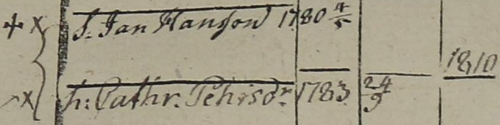 + X S. Jan Hansson 1780 4/5
X h: Cathr. Pehrsdr. 1783 24/9 1810